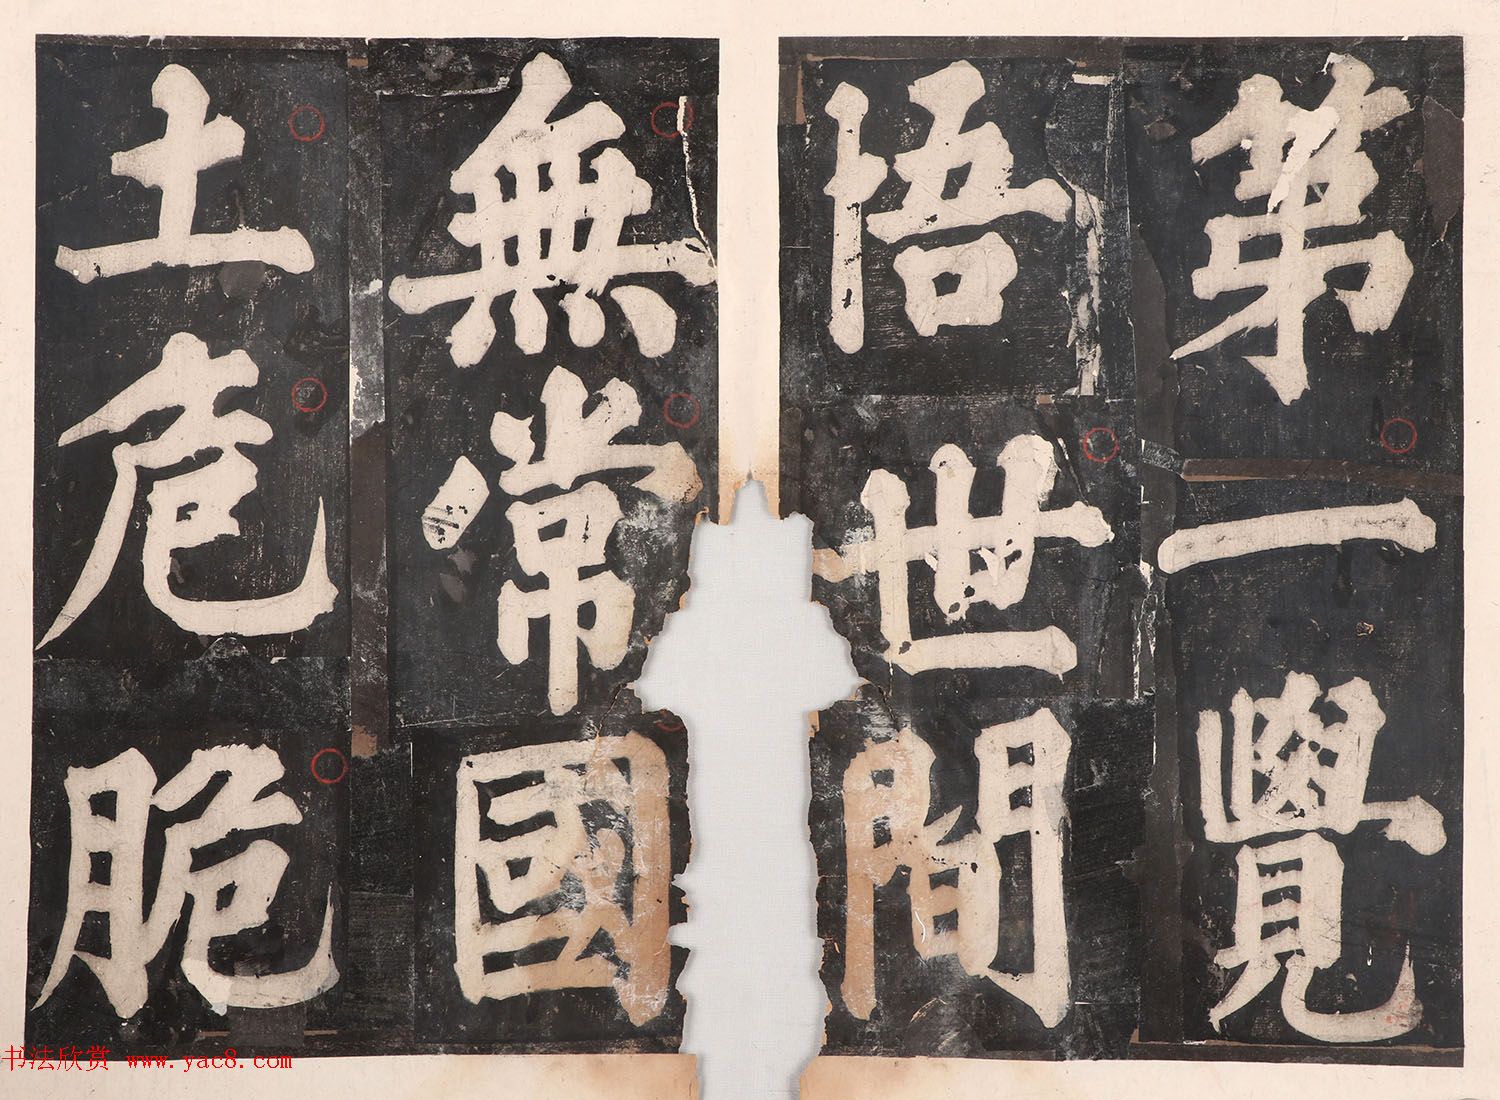 第一覺
悟世間
無常國
土危脆
书法欣赏 www.yac8.com